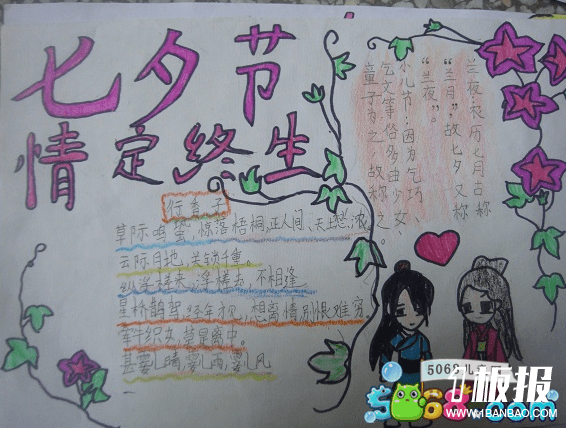 七夕节
情定终生
兰夜：农历七月古称
“兰月”，故七夕又称
“兰夜”。
小儿节：因为乞巧、
乞文等俗多由少女、
童子为之，故称之。
行香子
草际鸣蛩，惊落梧桐，正人间、天上愁浓。
云阶月地，关锁千重。
纵浮槎来，浮槎去，不相逢。
星桥鹊驾，经年才见，想离情别恨难穷。
牵牛织女，莫是离中。
甚霎儿晴，霎儿雨，霎儿风
5068儿
板报
5068.com
WWW.1BANBAO.COM